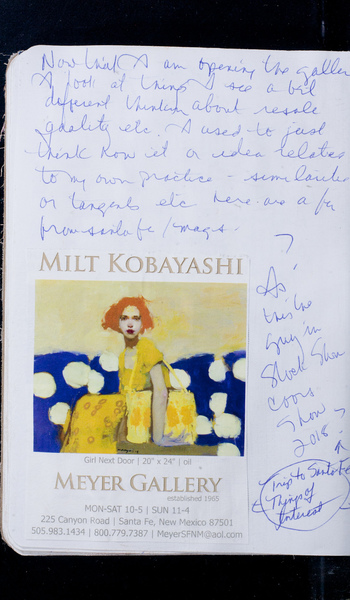 Now that I am opening the galler
I look at things I see a bit
different thinking about resale
quality etc. I used to just
think how it or idea relates
to my own practice - similarities
or tangents etc here are a few
from santa fe / images.
?
Is
this the
guy in
Stock Show
Coors
Show
2018?
Trip to Santa Fe
Things of
Interest
MILT KOBAYASHI
Girl Next Door | 20" x 24" | oil
MEYER GALLERY
established 1965
MON-SAT 10-5 | SUN 11-4
225 Canyon Road | Santa Fe, New Mexico 87501
505.983.1434 | 800.779.7387 | MeyerSFNM@aol.com